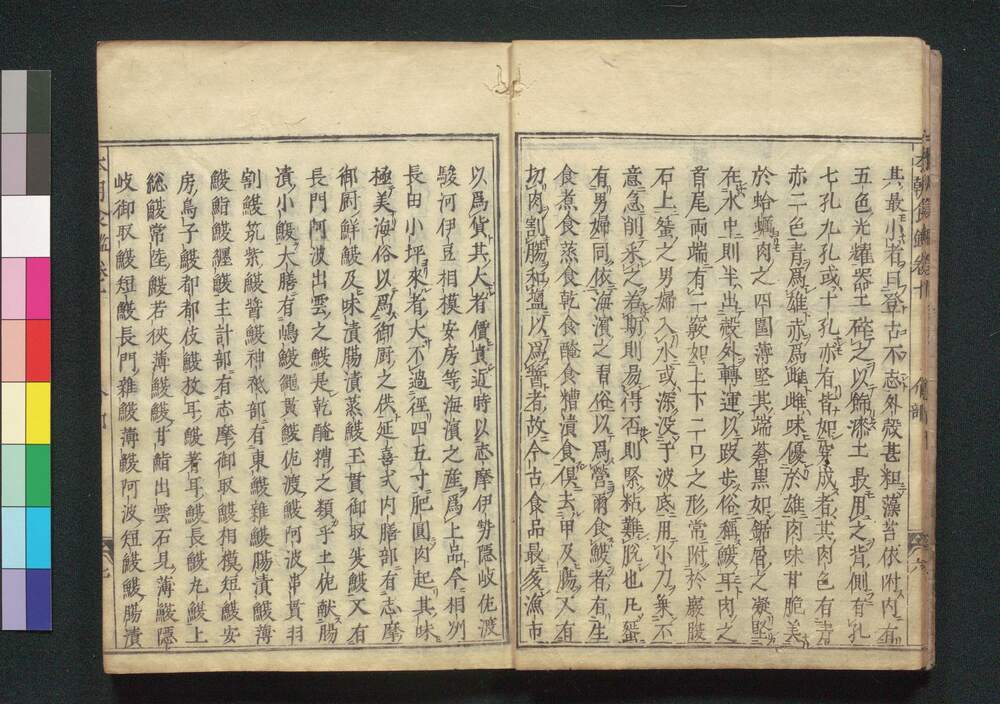 其最小者目登古不志外殻甚粗藻苔依附内有
五色光耀器工碎之以飾漆工最用之背側有孔
七孔九孔或十孔亦有皆如穿成者其肉色有青
赤二色青爲雄赤爲雌雌味優於雄肉味甘脆美
於蛤蠣肉之四圍薄堅其端蒼黒如鋸屑之凝堅
在水中則半出殻外轉運以跂歩俗稱鰒耳肉之
首尾兩端有二竅如上下二口之形常附於巖腹
石上蜑之男婦入水或深没于波底用小刀乗不
意急削采之若斯則易得否則緊粘難脱也凡蜑
有男婦同依海濱之有俗以爲營爾食鰒者有生
食煮食蒸食乾食醃食糟漬食倶去甲及腸又有
切肉割腸和塩以爲醬者故今古食品最多漁市
以爲貨其大者價貴近時以志摩伊勢隱岐佐渡
駿河伊豆相模安房等海濱之産爲上品今相列
長田小坪來者大不過徑四五寸肥圓肉起其味
極美海俗以爲御厨之供延喜式内膳部有志摩
御厨鮮鰒及味漬腸漬蒸鰒玉貫御取夋鰒又有
長門阿波出雲之鰒是乾醃糟之類乎土佐献腸
漬小鰒大膳有嶋鰒鮑貫鰒佐渡鰒阿波串貫羽
割鰒筑紫鰒醬鰒神祗部有東鰒雜鰒腸漬鰒薄
鰒鮨鰒纒鰒主計部有志摩御取鰒相模短鰒安
房鳥子鰒都都伎鰒放耳鰒著耳鰒長鰒丸鰒上
総鰒常陸鰒若狹薄鰒甘鮨出雲石見薄鰒隱
岐御取鰒短鰒長門雜鰒薄鰒阿波短鰒鰒腸漬